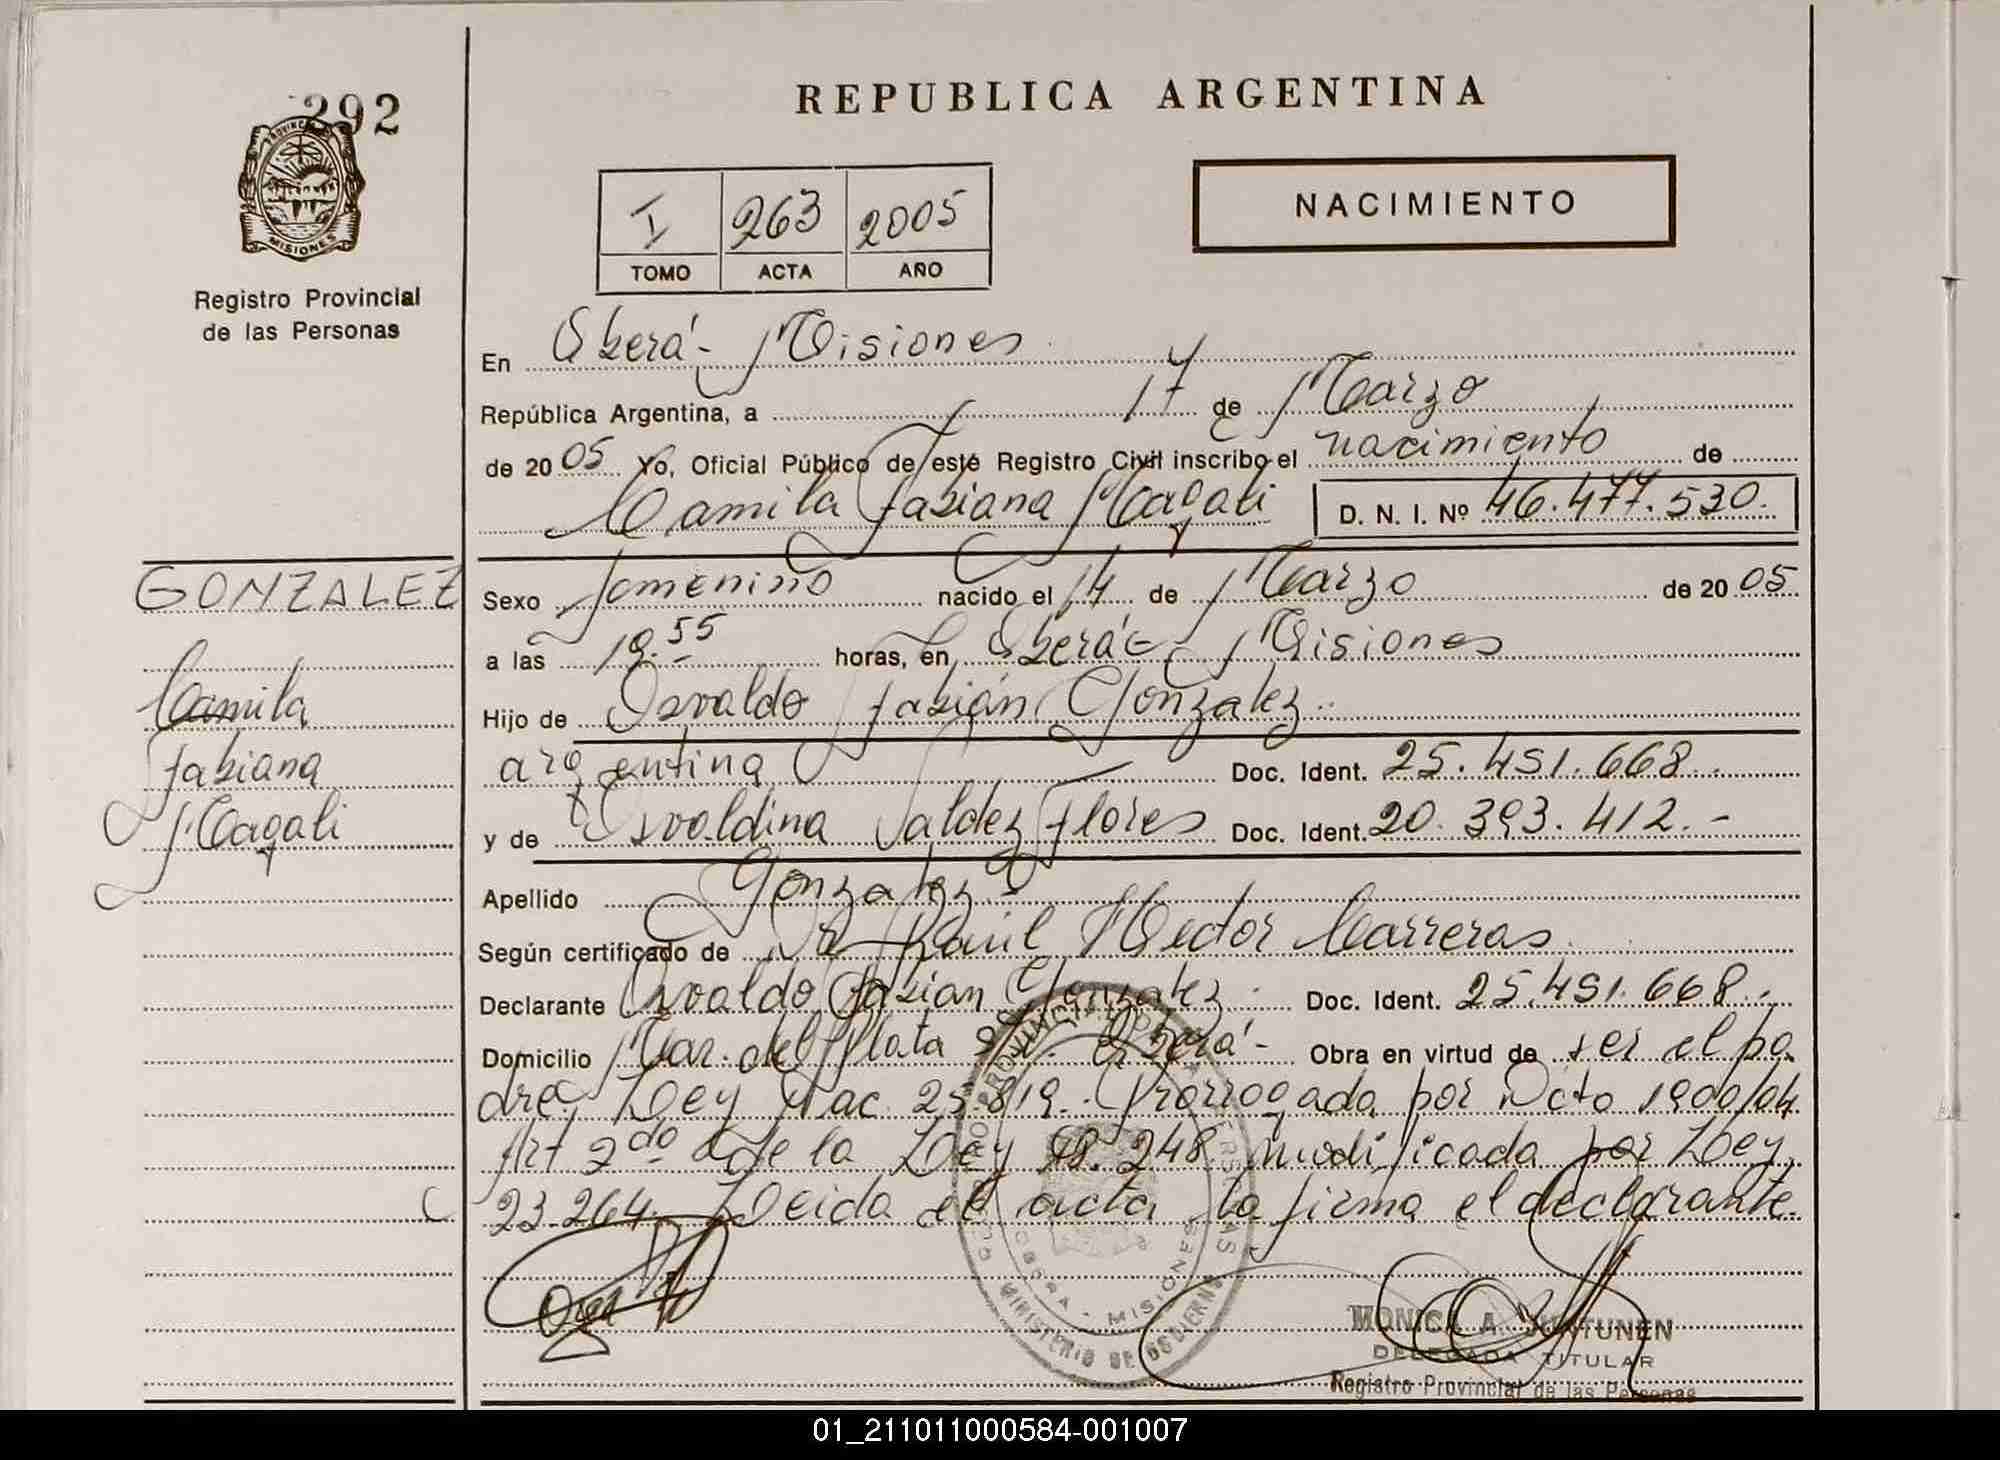 292
PROVINCIA
MISIONES
Registro Provincial
de las Personas
REPUBLICA ARGENTINA
I 263 2005
TOMO ACTA AÑO
NACIMIENTO
En Oberá - Misiones
República Argentina, a 17 de Marzo
de 2005 Yo, Oficial Público de este Registro Civil inscribo el nacimiento de
Camila Fabiana Magali D. N. I. Nº 46.477.530.
GONZALEZ
Camila
Fabiana
Magali
Sexo femenino nacido el 14 de Marzo de 2005
a las 19.55 horas, en Oberá - Misiones
Hijo de Osvaldo Fabián Gonzalez.
argentina Doc. Ident. 25.451.668.
y de Osvaldina Valdez Flores Doc. Ident. 20.393.412.-
Apellido Gonzalez.-
Según certificado de Dr Raúl Hector Carreras.
Declarante Osvaldo Fabián Gonzalez. Doc. Ident. 25.451.668.
Domicilio Mar del Plata s/n. Oberá - Obra en virtud de ser el pa
dre, Ley Nac 25.819. Prorrogada por Dcto 1900/04
Art 2do de la Ley 18.248 modificada por Ley
23.264. Leida el acta la firma el declarante.
MINISTERIO DE GOBIERNO
OBERA - MISIONES
MONICA A. JUNTUNEN
DELEGADA TITULAR
Registro Provincial de las Personas
01_211011000584-001007